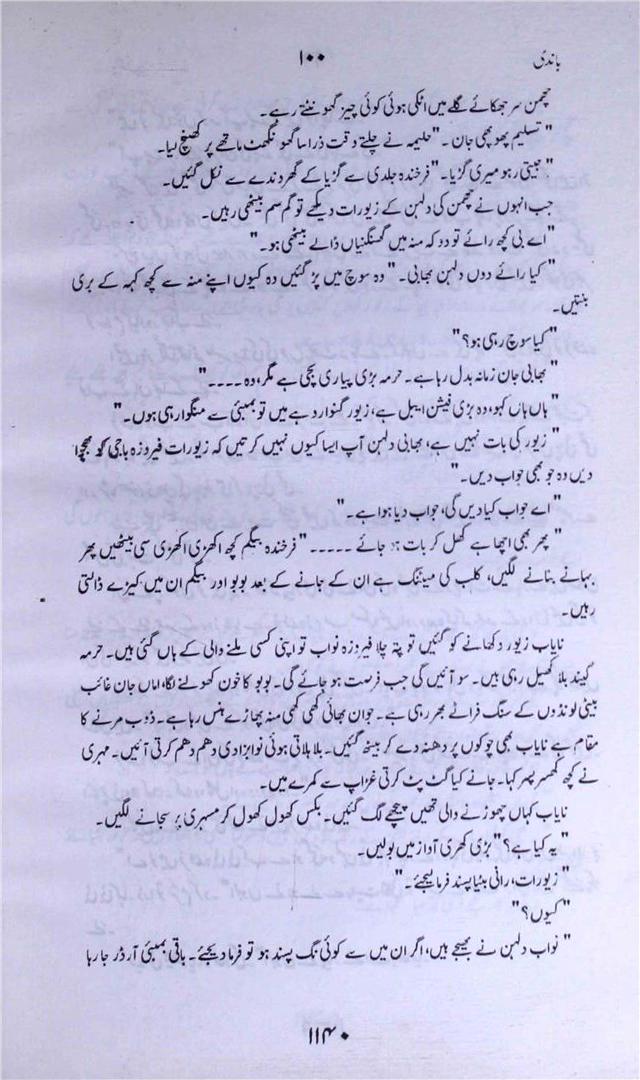 باندی ۱۰۰
چھمن سر جھکائے گلے میں اٹکی ہوئی کوئی چیز گھونٹتے رہے۔
" تسلیم پھوپھی جان۔ " حلیمہ نے چلتے وقت ذرا سا گھونگھٹ ماتھے پر کھینچ لیا۔
" جیتی رہو میری گڑیا۔ " فرخندہ جلدی سے گڑیا کے گھروندے سے نکل گئیں۔
جب انہوں نے چھمن کی دلہن کے زیورات دیکھے تو گم سم بیٹھی رہیں۔
" اے بی کچھ رائے تو دو کہ منہ میں گھنگنیاں ڈالے بیٹھی ہو۔ "
" کیا رائے دوں دلہن بھابی۔ " وہ سوچ میں پڑ گئیں وہ کیوں اپنے منہ سے کچھ کہہ کے بری
بنتیں۔
" کیا سوچ رہی ہو؟ "
" بھابی جان زمانہ بدل رہا ہے۔ حرمہ بڑی پیاری بچی ہے مگر، وہ ۔۔۔۔ "
" ہاں ہاں کہو، وہ بڑی فیشن ایبل ہے، زیور گنوارو ہے میں تو بمبئی سے منگوا رہی ہوں۔ "
" زیور کی بات نہیں ہے، بھابی دلہن آپ ایسا کیوں نہیں کرتیں کہ زیورات فیروزہ باجی کو بھجوا
دیں وہ جو بھی جواب دیں۔ "
" اے جواب کیا دیں گی، جواب دیا ہوا ہے۔ "
" پھر بھی اچھا ہے کھل کر بات ہو جائے ۔۔۔۔۔ " فرخندہ بیگم کچھ اکھڑی اکھڑی سی بیٹھیں پھر
بہانے بنانے لگیں، کلب کی میٹنگ ہے ان کے جانے کے بعد بوبو اور بیگم ان میں کیڑے ڈالتی
رہیں۔
نایاب زیور دکھانے کو گئیں تو پتہ چلا فیروزہ نواب تو اپنی کسی ملنے والی کے ہاں گئی ہیں۔ حرمہ
گیند بلا کھیل رہی ہیں۔ سو آئیں گی جب فرصت ہو جائے گی۔ بوبو کا خون کھولنے لگا، اماں جان غائب
بیٹی لونڈوں کے سنگ فراٹے بھر رہی ہے۔ جوان بھائی کھی کھی منہ پھاڑے ہنس رہا ہے۔ ڈوب مرنے کا
مقام ہے نایاب بھی چوکوں پر دھنہ دے کر بیٹھ گئیں۔ بلا ہلاتی ہوئی نوابزادی دھم دھم کرتی آئیں۔ مہری
نے کچھ کھسر پھسر کہا۔ جانے کیا گٹ پٹ کرتی غڑاپ سے کمرے میں۔
نایاب کہاں چھوڑنے والی تھیں پیچھے لگ گئیں۔ بکس کھول کھول کر مسہری پر سجانے لگیں۔
" یہ کیا ہے؟ " بڑی کھری آواز میں بولیں۔
" زیورات، رانی بٹیا پسند فرما لیجئے۔ "
" کیوں؟ "
" نواب دلہن نے بھیجے ہیں، اگر ان میں سے کوئی نگ پسند ہو تو فرما دیجئے۔ باقی بمبئی آرڈر جا رہا
۱۱۴۰